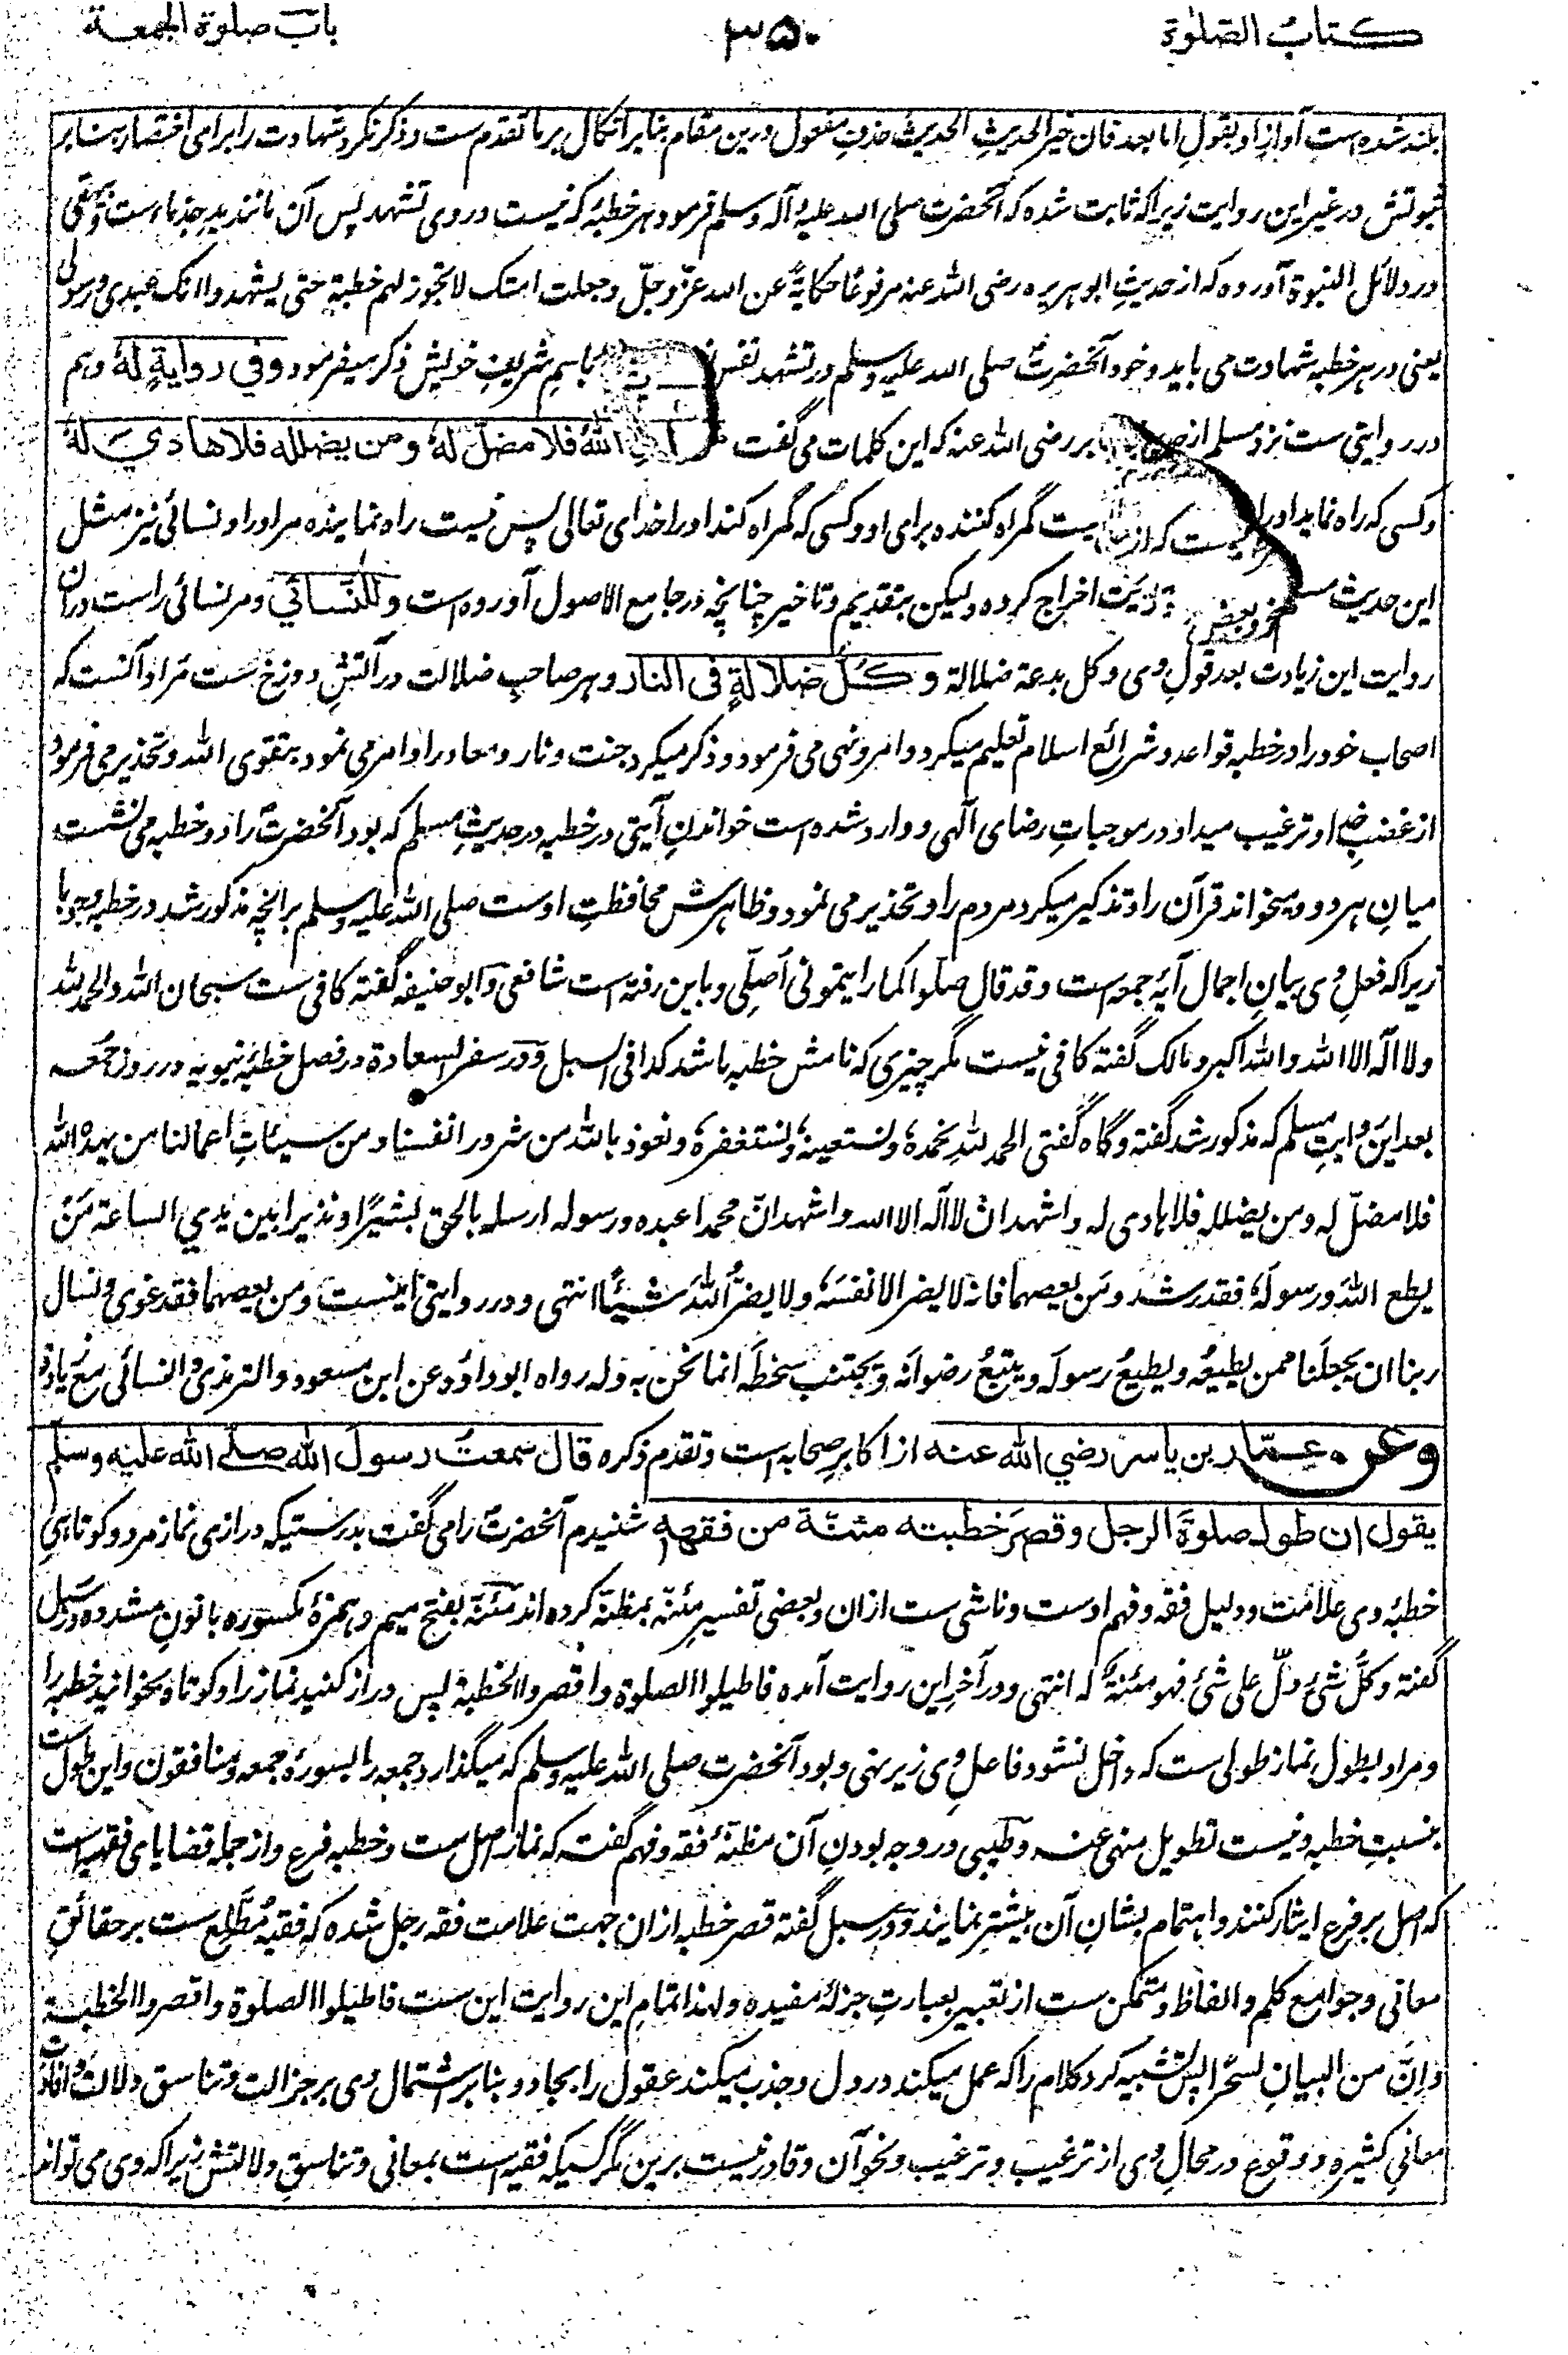 كتاب الصلوٰة
۳۵۰
باب صلوة الجمعة
بلند شده است آواز او بقولِ اما بعد فان خیر الحدیثِ الحدیث حذفِ مفعول درین مقام بنابر اتکال بر ما تقدم ست و ذکر نکرد شهادت را برای اختصار بنابر
ثبوتش در غیر این روایت زیرا که ثابت شده که آنحضرت صلی الله علیه وآله وسلم فرمود هر خطبهٔ که نیست در وی تشهد پس آن مانند ید جذماء است و بیهقی
در دلائل النبوة آورده که از حدیثِ ابو هریره رضی الله عنه مرفوعًا حکایةً عن الله عزّ وجلّ وجعلت امتک لا تجوز لهم خطبة حتی یشهدوا انک عبدی ورسولی
یعنی در هر خطبه شهادت می باید و خود آنحضرت صلی الله علیه وسلم در تشهد نفس باسمِ شریفِ خویش ذکر میفرمود وفي روايةٍ لهٗ وهم
در روایتی ست نزد مسلم از بر رضی الله عنه که این کلمات می گفت اللهُ فلا مضلّ لهٗ ومن يضلله فلا هادي لهٗ
و کسی که راه نماید اورا یست گمراه کننده برای او و کسی که گمراه کند اورا خدای تعالی پس نیست راه نماینده مر اورا و نسائی نیز مثل
این حدیث اخراج کرده ولیکن بتقدیم و تاخیر چنانچه در جامع الاصول آورده است وللنّسائي ومر نسائی راست دران
روایت این زیادت بعد قولِ وی وکل بدعة ضلالة وكلُّ ضلالةٍ في النار وهر صاحبِ ضلالت در آتشِ دوزخ ست مراد آنست که
اصحاب خود را در خطبه قواعد و شرائع اسلام تعلیم میکرد و امر و نهی می فرمود و ذکر میکرد جنت و نار و معاد را و امر می نمود بتقوی الله و تحذیر می فرمود
از غضبِ او و ترغیب میداد در موجباتِ رضای آلهی و وارد شده است خواندنِ آیتی در خطبه در حدیثِ مسلم که بود آنحضرت را دو خطبه می نشست
میانِ هر دو و میخواند قرآن را و تذکیر میکرد مردم را و تحذیر می نمود و ظاهرش محافظتِ اوست صلی الله علیه وسلم بر آنچه مذکور شد در خطبه وجوبا
زیرا که فعلِ وی بیانِ اجمال آیهٔ جمعه است وقد قال صلوا کما رایتمونی اُصلّی و باین رفته است شافعی و ابو حنیفه گفته کافی ست سبحان الله والحمد لله
ولا اله الا الله والله اکبر و مالک گفته کافی نیست مگر چیزی که نامش خطبه باشد کذا فی السبل و در سفر السعادة در فصل خطبهٔ نبویه در روز جمعه
بعد این روایتِ مسلم که مذکور شد گفته و گاه گفتی الحمد للهِ نحمدهٗ ونستعینهٗ ونستغفرهٗ ونعوذ بالله من شرور انفسنا ومن سیئاتِ اعمالنا من یهدهِ الله
فلا مضلّ له ومن یضلله فلا هادی له واشهد ان لا اله الا الله واشهد انّ محمدا عبده ورسوله ارسله بالحق بشیرًا ونذیرا بین یدي الساعة مَنْ
یطع اللهَ ورسولَهٗ فقد رشد ومَن یعصهما فانه لا یضر الا نفسَهٗ ولا یضرُّ اللهَ شیئًا انتهی و در روایتی اینست ومن یعصهما فقد غوی ونسال
ربنا ان یجعلَنا ممن یطیعُه ویطیعُ رسولَه ویتبعُ رضوانَه ویجتنب سخطَه انما نحن به وله رواه ابو داؤد عن ابن مسعود والترمذی والنسائی مع زیادة
وعن عمّار بن ياسر رضي الله عنه از اکابرِ صحابه است و تقدم ذکره قال سمعتُ رسول الله صلى الله عليه وسلم
يقول ان طول صلوةَ الرجل وقصرَ خطبته مئنّة من فقهه شنیدم آنحضرت را می گفت بدرستیکه درازی نماز مرد و کوتاهیِ
خطبهٔ وی علامت و دلیل فقه و فهم اوست و ناشی ست ازان و بعضی تفسیرِ مئنّه بمظنّة کرده اند مئنّة بفتح میم و همزهٔ مکسوره بانونِ مشدده و در سبل
گفته وکلُّ شیٔ دلّ علی شیٔ فهو مئنةٌ له انتهی و در آخرِ این روایت آمده فاطیلوا الصلوة واقصروا الخطبة پس دراز کنید نماز را و کوتاه بخوانید خطبه را
و مراد بطول نماز طولی است که داخل نشود فاعلِ وی زیر نهی و بود آنحضرت صلی الله علیه وسلم که میگذارد جمعه را بسورهٔ جمعه و منافقون و این طول ست
بنسبتِ خطبه و نیست تطویل منهی عنه و طیبی در وجه بودنِ آن مظنّهٔ فقه و فهم گفته که نماز اصل ست و خطبه فرع و از جمله قضایای فقهیه است
که اصل بر فرع ایثار کنند و اهتمام بشانِ آن بیشتر نمایند و در سبل گفته قصر خطبه ازان جهت علامت فقه رجل شده که فقیه مُطَّلِع ست بر حقائقِ
معانی و جوامع کلم و الفاظ و متمکن ست از تعبیر بعبارتِ جزلهٔ مفیده و لهذا تمامِ این روایت این ست فاطیلوا الصلوة واقصروا الخطبة
وانّ من البیانِ لسحرا پس تشبیه کرد کلام را که عمل میکند در دل و جذب میکند عقول را بجادو و بنابر اشتمال وی بر جزالت و تناسق دلالت و افادت
معانیِ کثیره و وقوع در محالِ وی از ترغیب و ترهیب و نحو آن و قادر نیست برین مگر کسیکه فقیه است بمعانی و تناسقِ دلالتش زیرا که وی می تواند